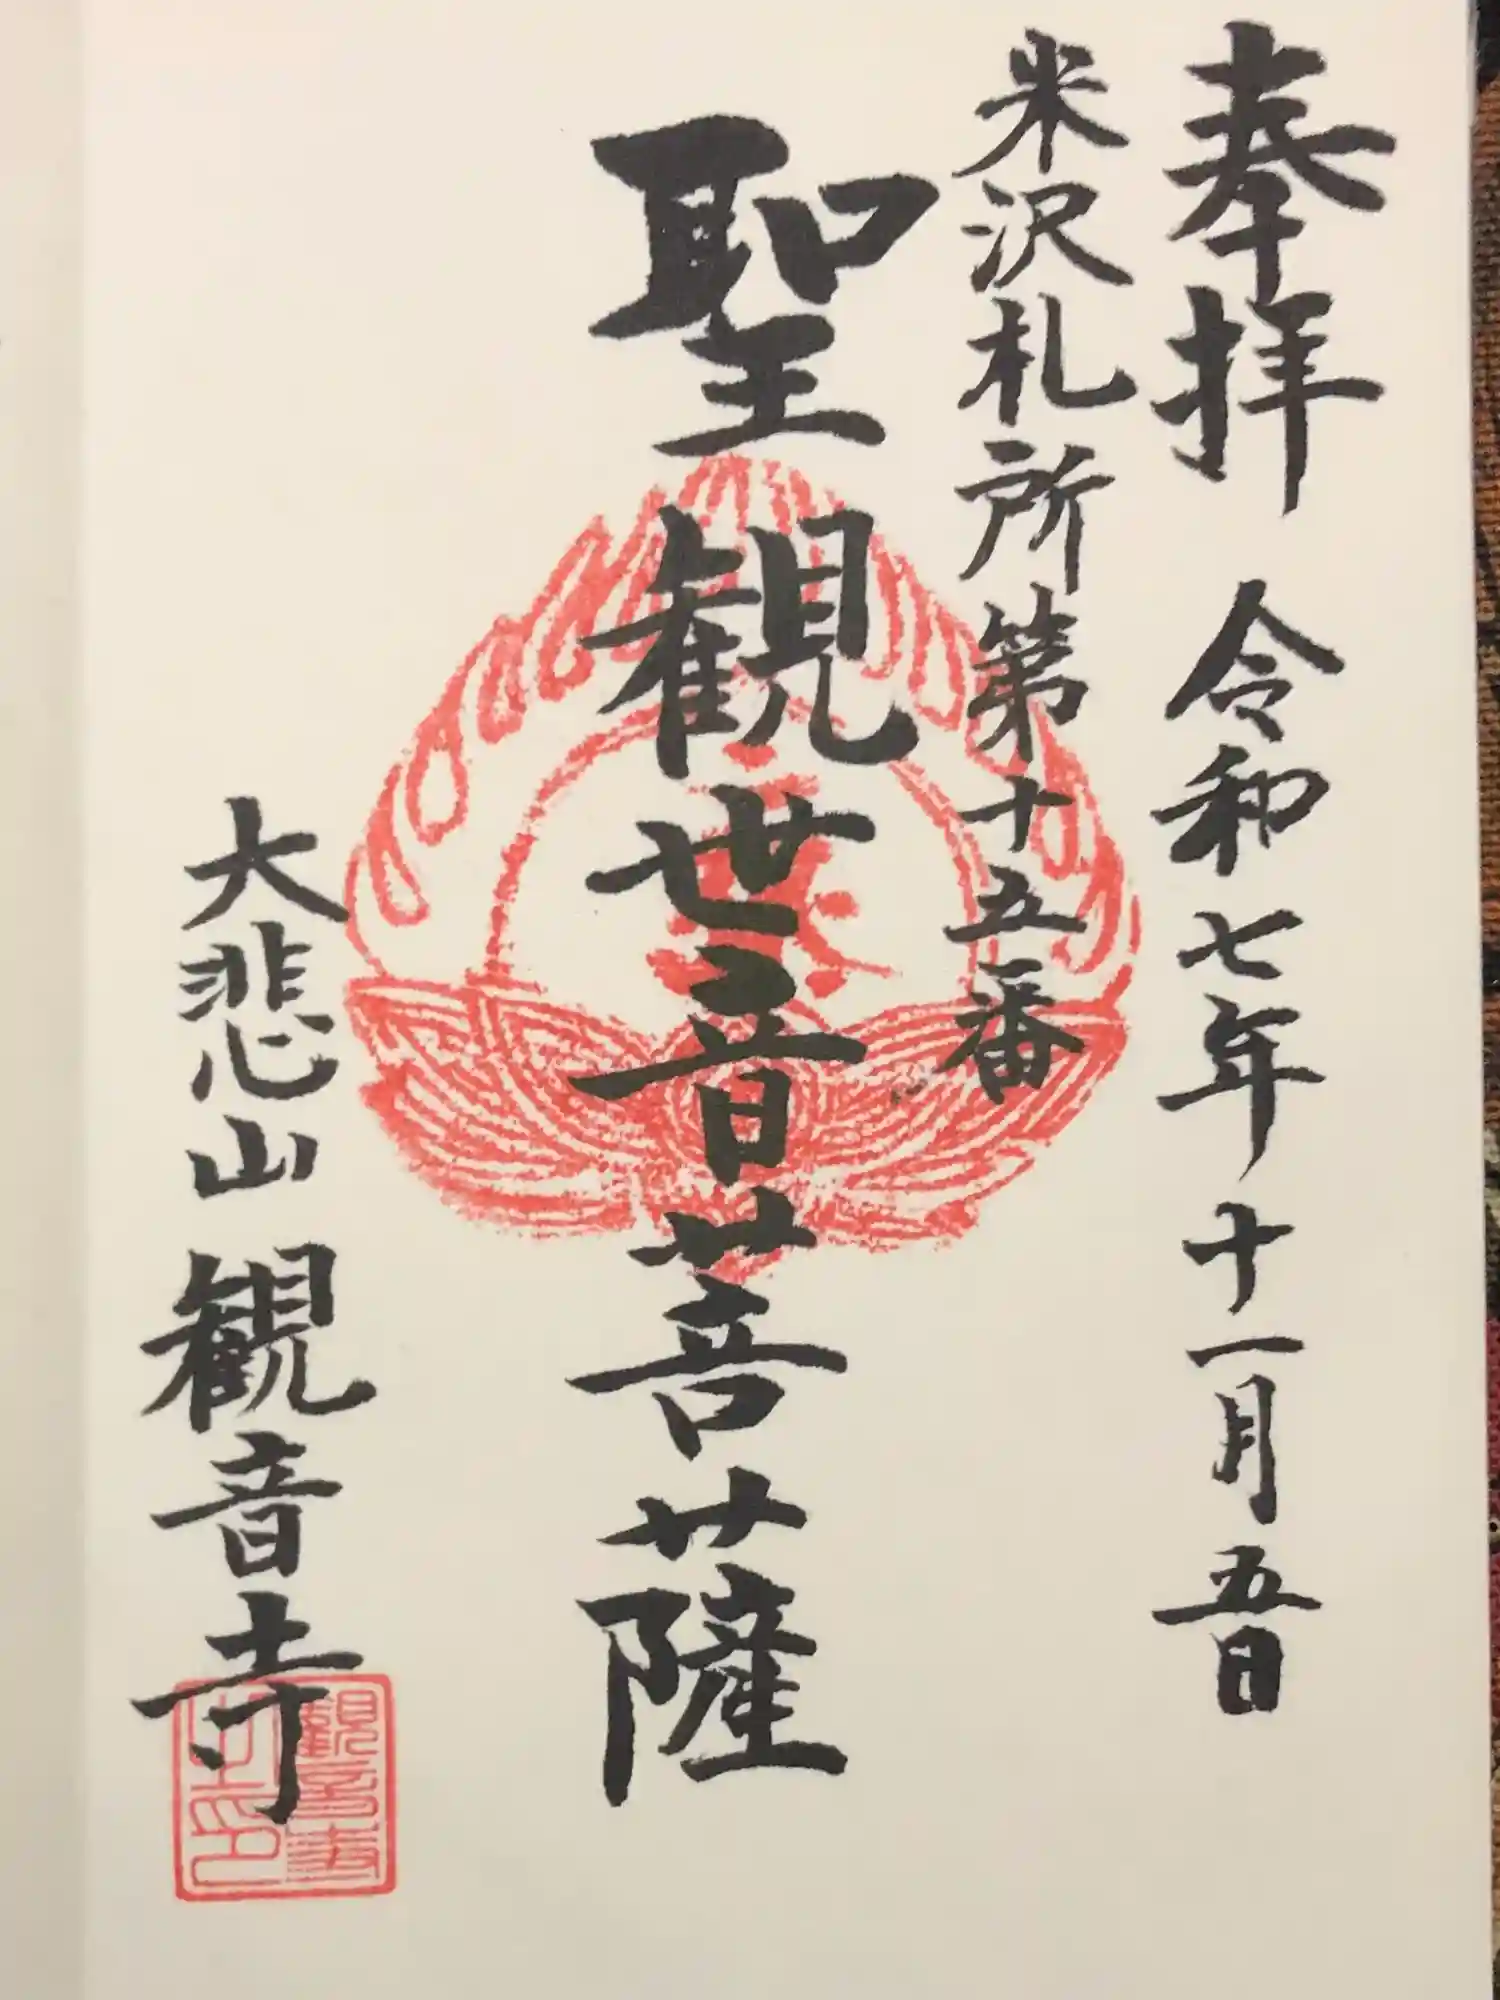 奉拝 令和七年十一月五日
米沢札所第十五番
聖観世音菩薩
大悲山 観音寺
觀音寺之印